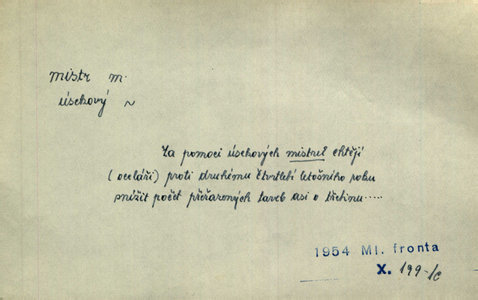 mistr m.
úsekový ~
Za pomoci úsekových mistrů chtějí
(oceláři) proti druhému čtvrtletí letošního roku
snížit počet přeřazených taveb asi o třetinu.....
1954 Ml. fronta
X. 199-1c